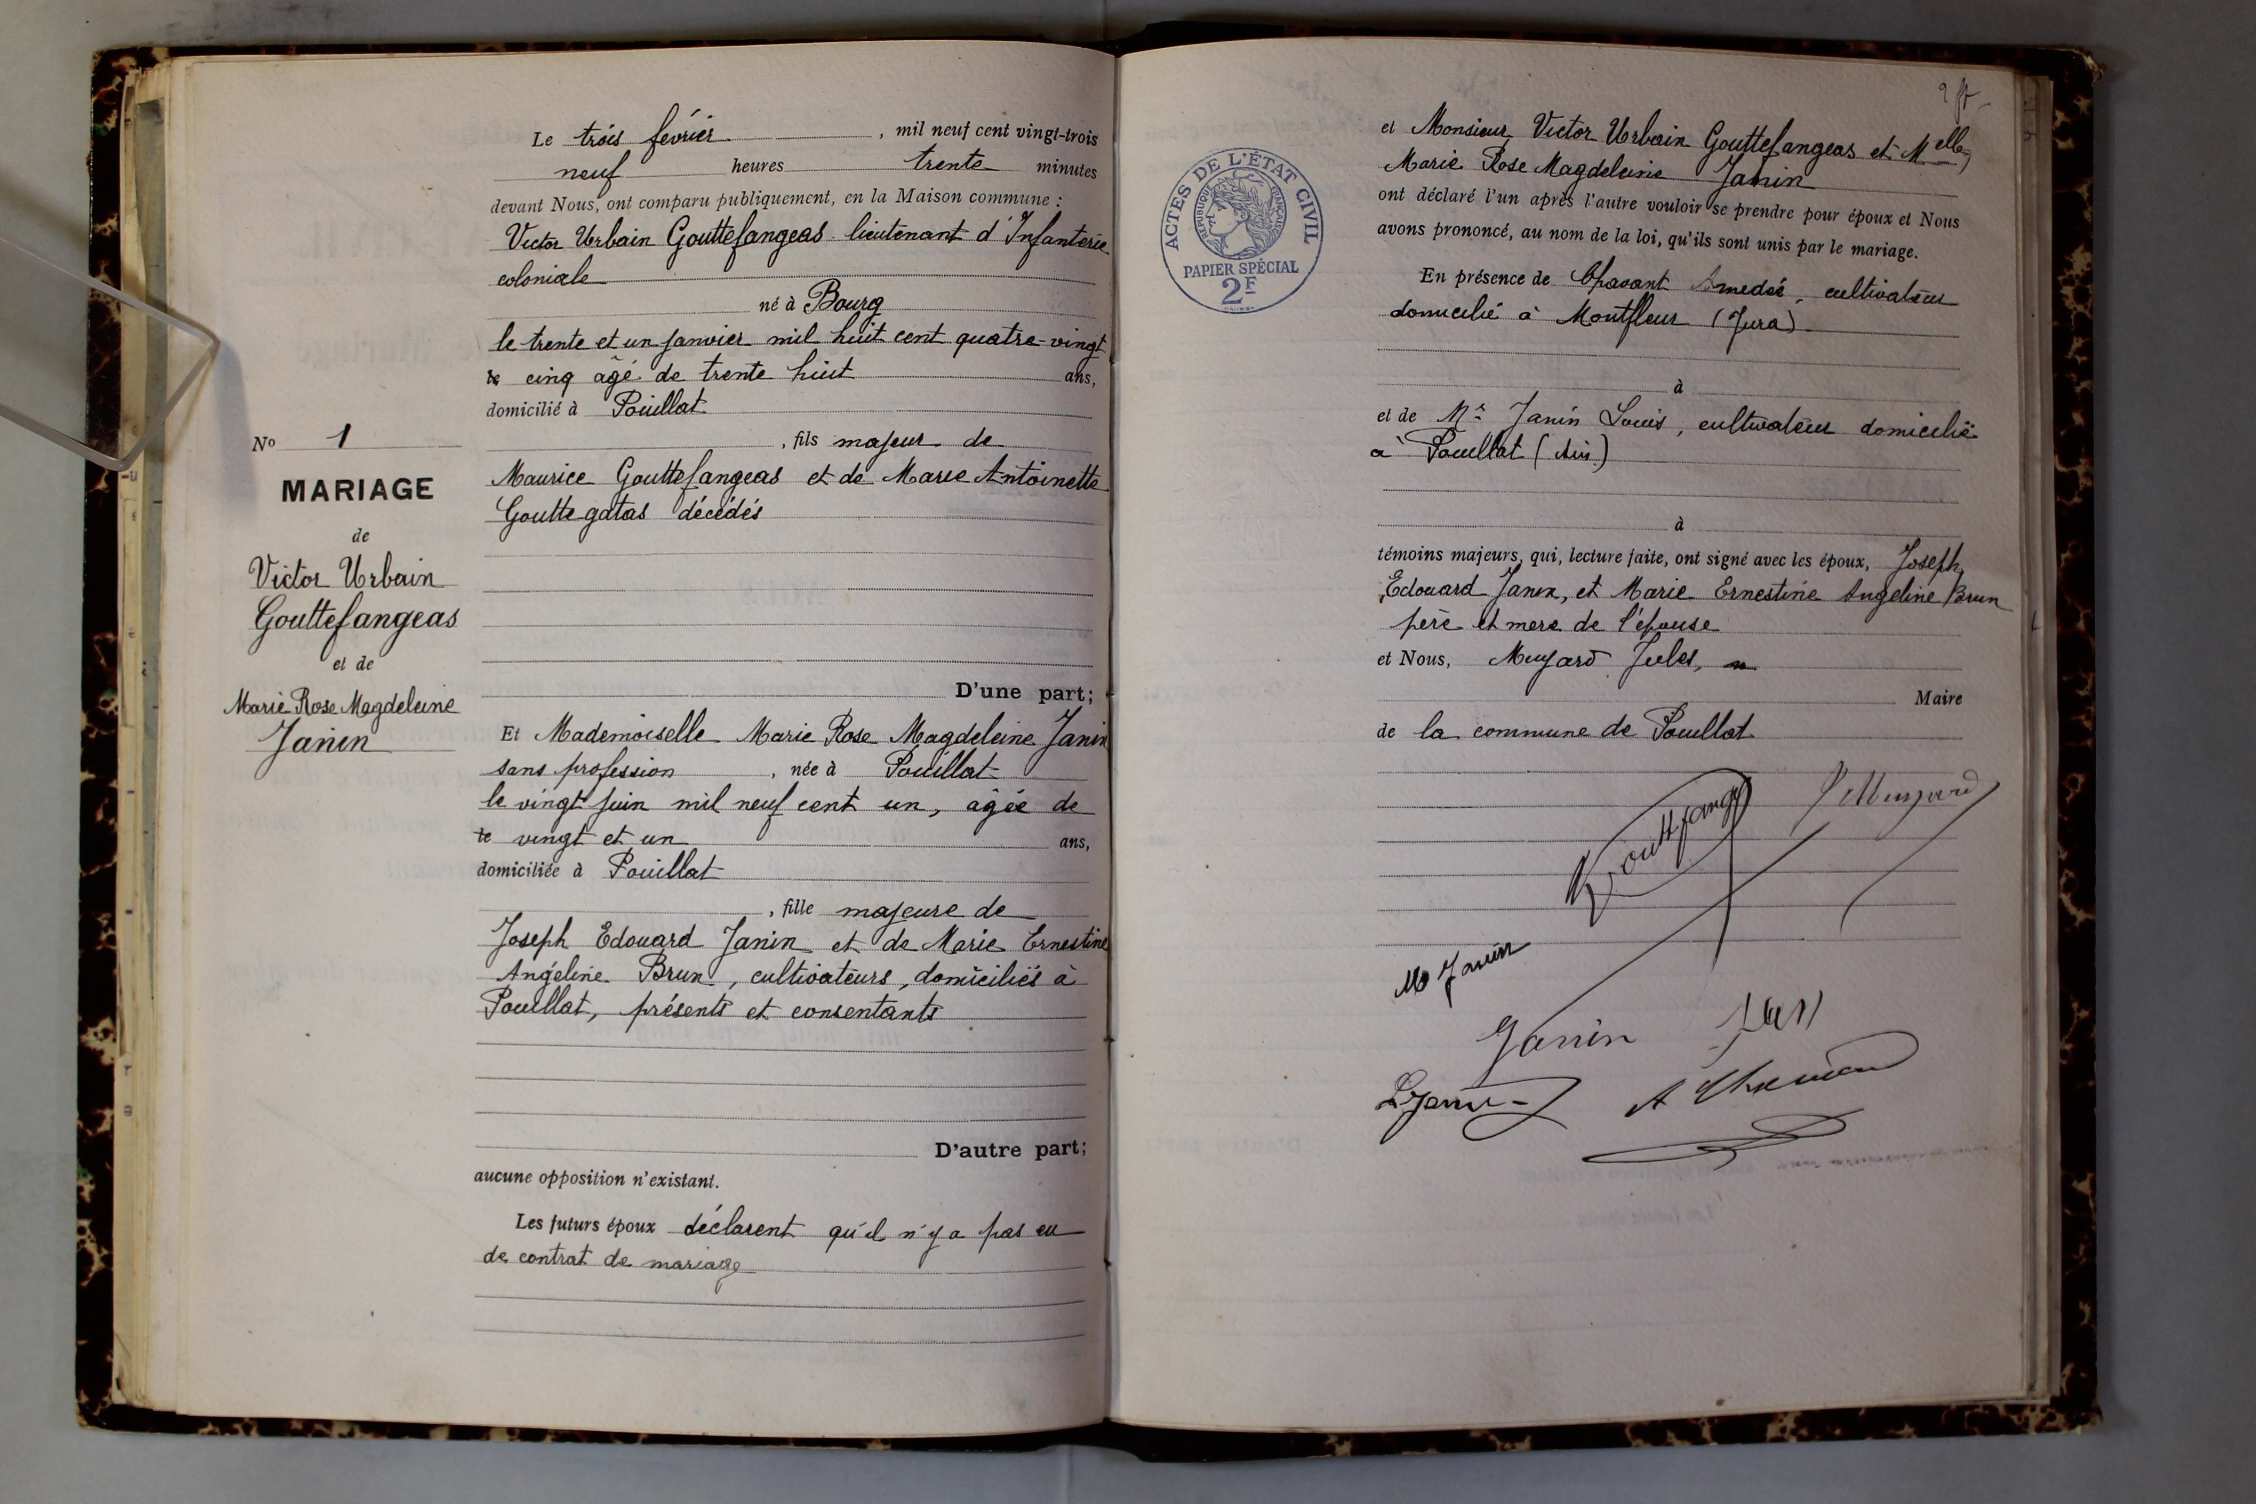 Le trois février , mil neuf cent vingt-trois
neuf heures trente minutes
devant Nous, ont comparu publiquement, en la Maison commune :
Victor Urbain Gouttefangeas lieutenant d'Infanterie
coloniale
né à Bourg
le trente et un janvier mil huit cent quatre-vingt
le cinq âgé de trente huit ans,
domicilié à Pouillat
, fils majeur de
Maurice Gouttefangeas et de Marie Antoinette
Goutte gatas décédés
D'une part;
Et Mademoiselle Marie Rose Magdeleine Janin
sans profession , née à Pouillat
le vingt juin mil neuf cent un, âgée de
le vingt et un ans,
domiciliée à Pouillat
, fille majeure de
Joseph Edouard Janin et de Marie Ernestine
Angéline Brun, cultivateurs, domiciliés à
Pouillat, présents et consentants
D'autre part;
aucune opposition n'existant.
Les futurs époux déclarent qu'il n'y a pas eu
de contrat de mariage
No 1
MARIAGE
de
Victor Urbain
Gouttefangeas
et de
Marie Rose Magdeleine
Janin
ACTES DE L'ÉTAT CIVIL
RÉPUBLIQUE FRANÇAISE
PAPIER SPÉCIAL
2F
et Monsieur Victor Urbain Gouttefangeas et Melle
Marie Rose Magdeleine Janin
ont déclaré l'un après l'autre vouloir se prendre pour époux et Nous
avons prononcé, au nom de la loi, qu'ils sont unis par le mariage.
En présence de Chavant Amedée, cultivateur
domicilié à Montfleur (Jura)
à
et de Mr Janin Louis, cultivateur domicilié
à Pouillat (Ain)
à
témoins majeurs, qui, lecture faite, ont signé avec les époux, Joseph
Edouard Janin, et Marie Ernestine Angeline Brun
père et mere de l'épouse
et Nous, Muyard Jules,
Maire
de la commune de Pouillat
Gouttefangeas
J Muyard
M Janin
Janin
L Janin
A Chavant